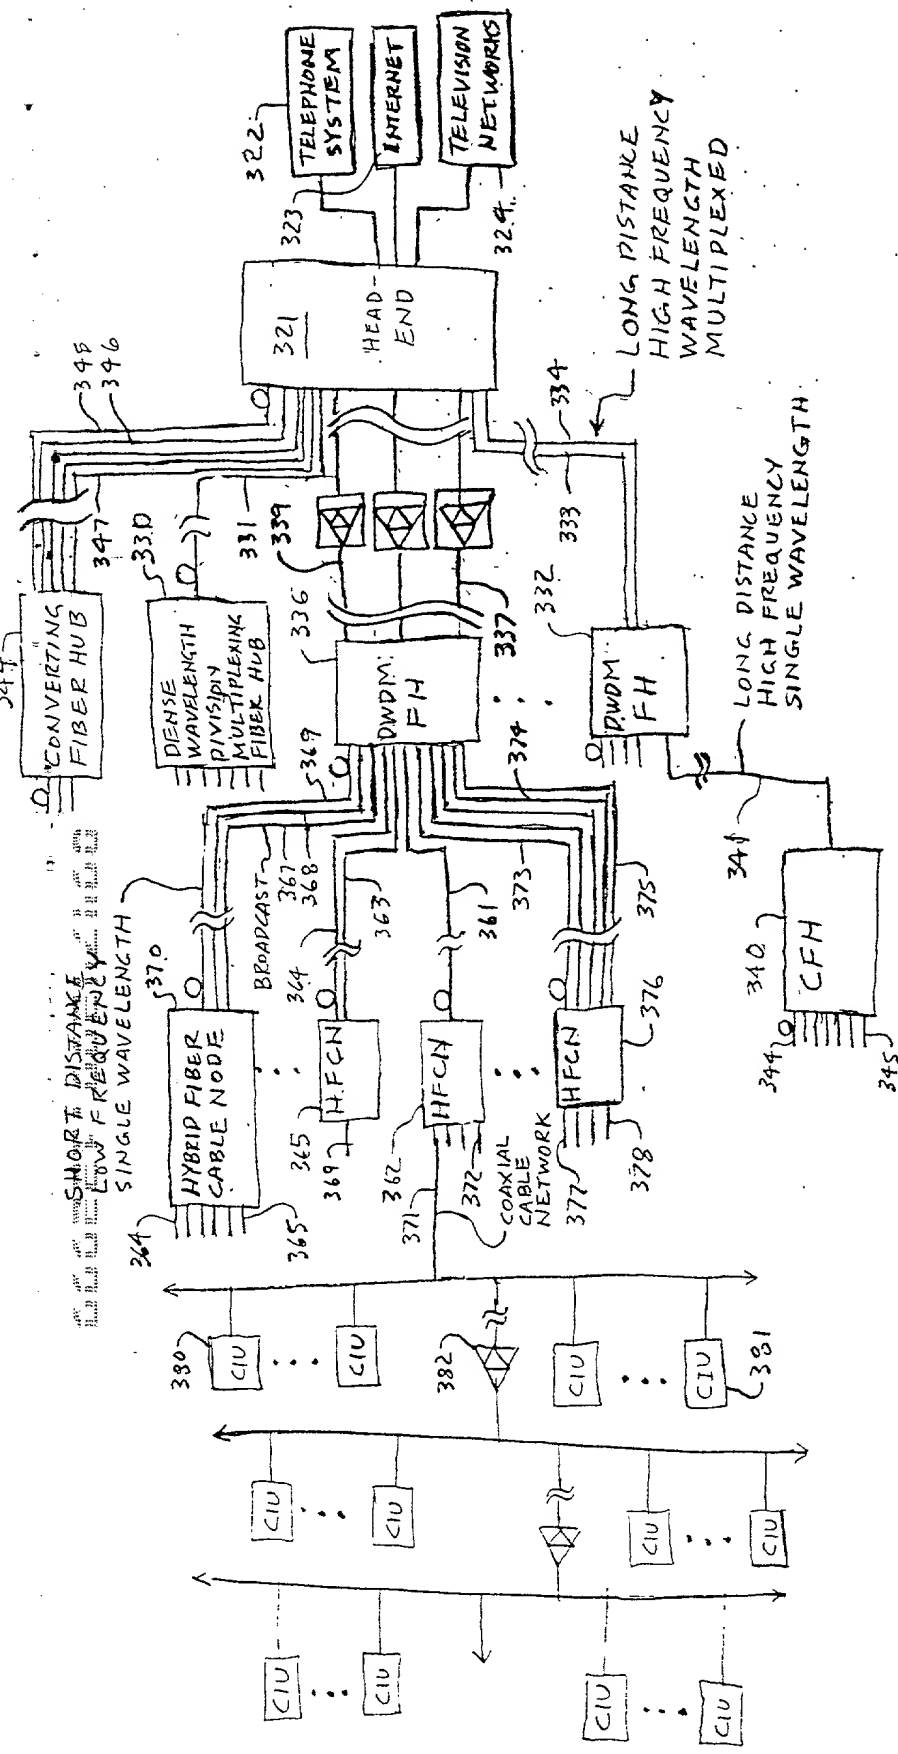 322
TELEPHONE
SYSTEM
323
INTERNET
TELEVISION
NETWORKS
324
321
HEAD-
END
LONG DISTANCE
HIGH FREQUENCY
WAVELENGTH
MULTIPLEXED
345
346
347
331
339
337
333
334
344
CONVERTING
FIBER HUB
330
DENSE
WAVELENGTH
DIVISION
MULTIPLEXING
FIBER HUB
336
DWDM
FH
332
DWDM
FH
LONG DISTANCE
HIGH FREQUENCY
SINGLE WAVELENGTH
SHORT DISTANCE
LOW FREQUENCY
SINGLE WAVELENGTH
369
BROADCAST
367
368
363
364
361
374
373
375
341
370
HYBRID FIBER
CABLE NODE
364
365
365
HFCN
369
362
HFCN
372
371
COAXIAL
CABLE
NETWORK
HFCN
376
377
378
340
CFH
344
345
380
CIU
CIU
382
CIU
CIU
381
CIU
CIU
CIU
CIU
CIU
CIU
CIU
CIU